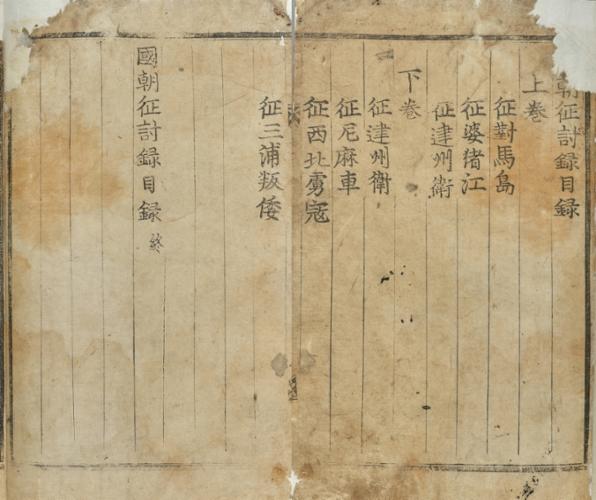 朝征討録目録
上巻
征對馬島
征婆猪江
征建州衛
下巻
征建州衛
征尼麻車
征西北虜寇
征三浦叛倭
國朝征討録目録 終